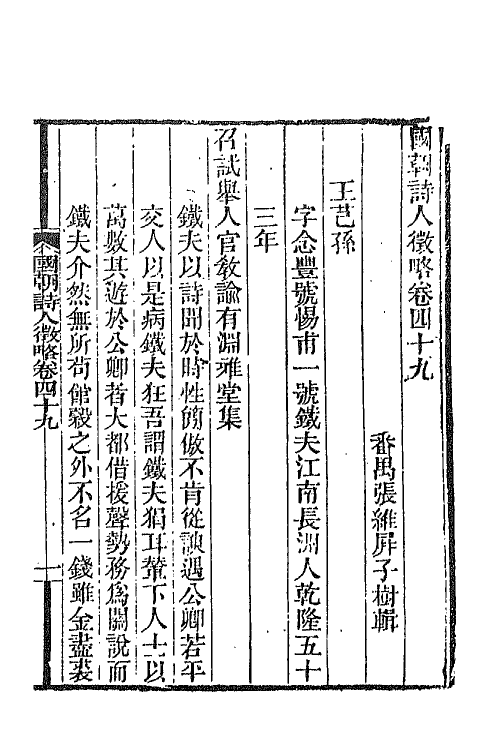 國朝詩人徵略卷四十九
番禺張維屛子樹輯
王芑孫
字念豐號惕甫一號鐵夫江南長洲人乾隆五十
三年
召試舉人官敎諭有淵雅堂集
鐵夫以詩聞於時性簡傲不肯從諛遇公卿若平
交人以是病鐵夫狂吾謂鐵夫狷耳輦下人士以
萬數其遊於公卿者大都借援聲勢務爲關說而
鐵夫介然無所苟館穀之外不名一錢雖金盡裘
國朝詩人徵略卷四十九
一